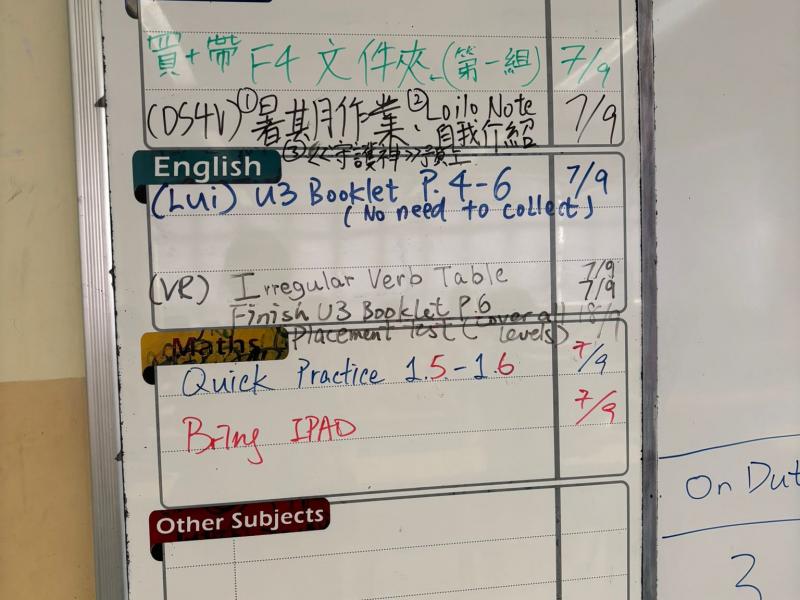 買+帶 F4 文件夾 (第一組) 7/9
(DS4V) ①暑期作業 ②Loilo Note 7/9
自我介紹
③《守護神》預上
English
(Lui) U3 Booklet P. 4-6 7/9
(No need to collect)
(VR) Irregular Verb Table 7/9
Finish U3 Booklet P.6 7/9
Placement Test (cover all levels) 18/9
Maths
Quick Practice 1.5-1.6 7/9
Bring IPAD 7/9
Other Subjects
On Dut
3